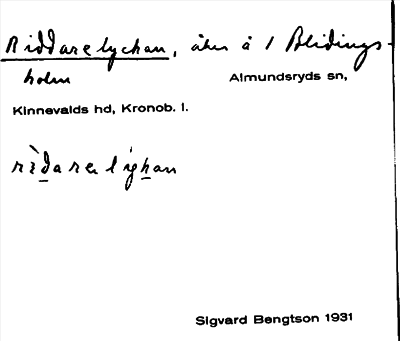 Riddarelyckan, åker å 1 Blidings-
holm Almundsryds sn,
Kinnevalds hd, Kronob. l.
Sigvard Bengtson 1931